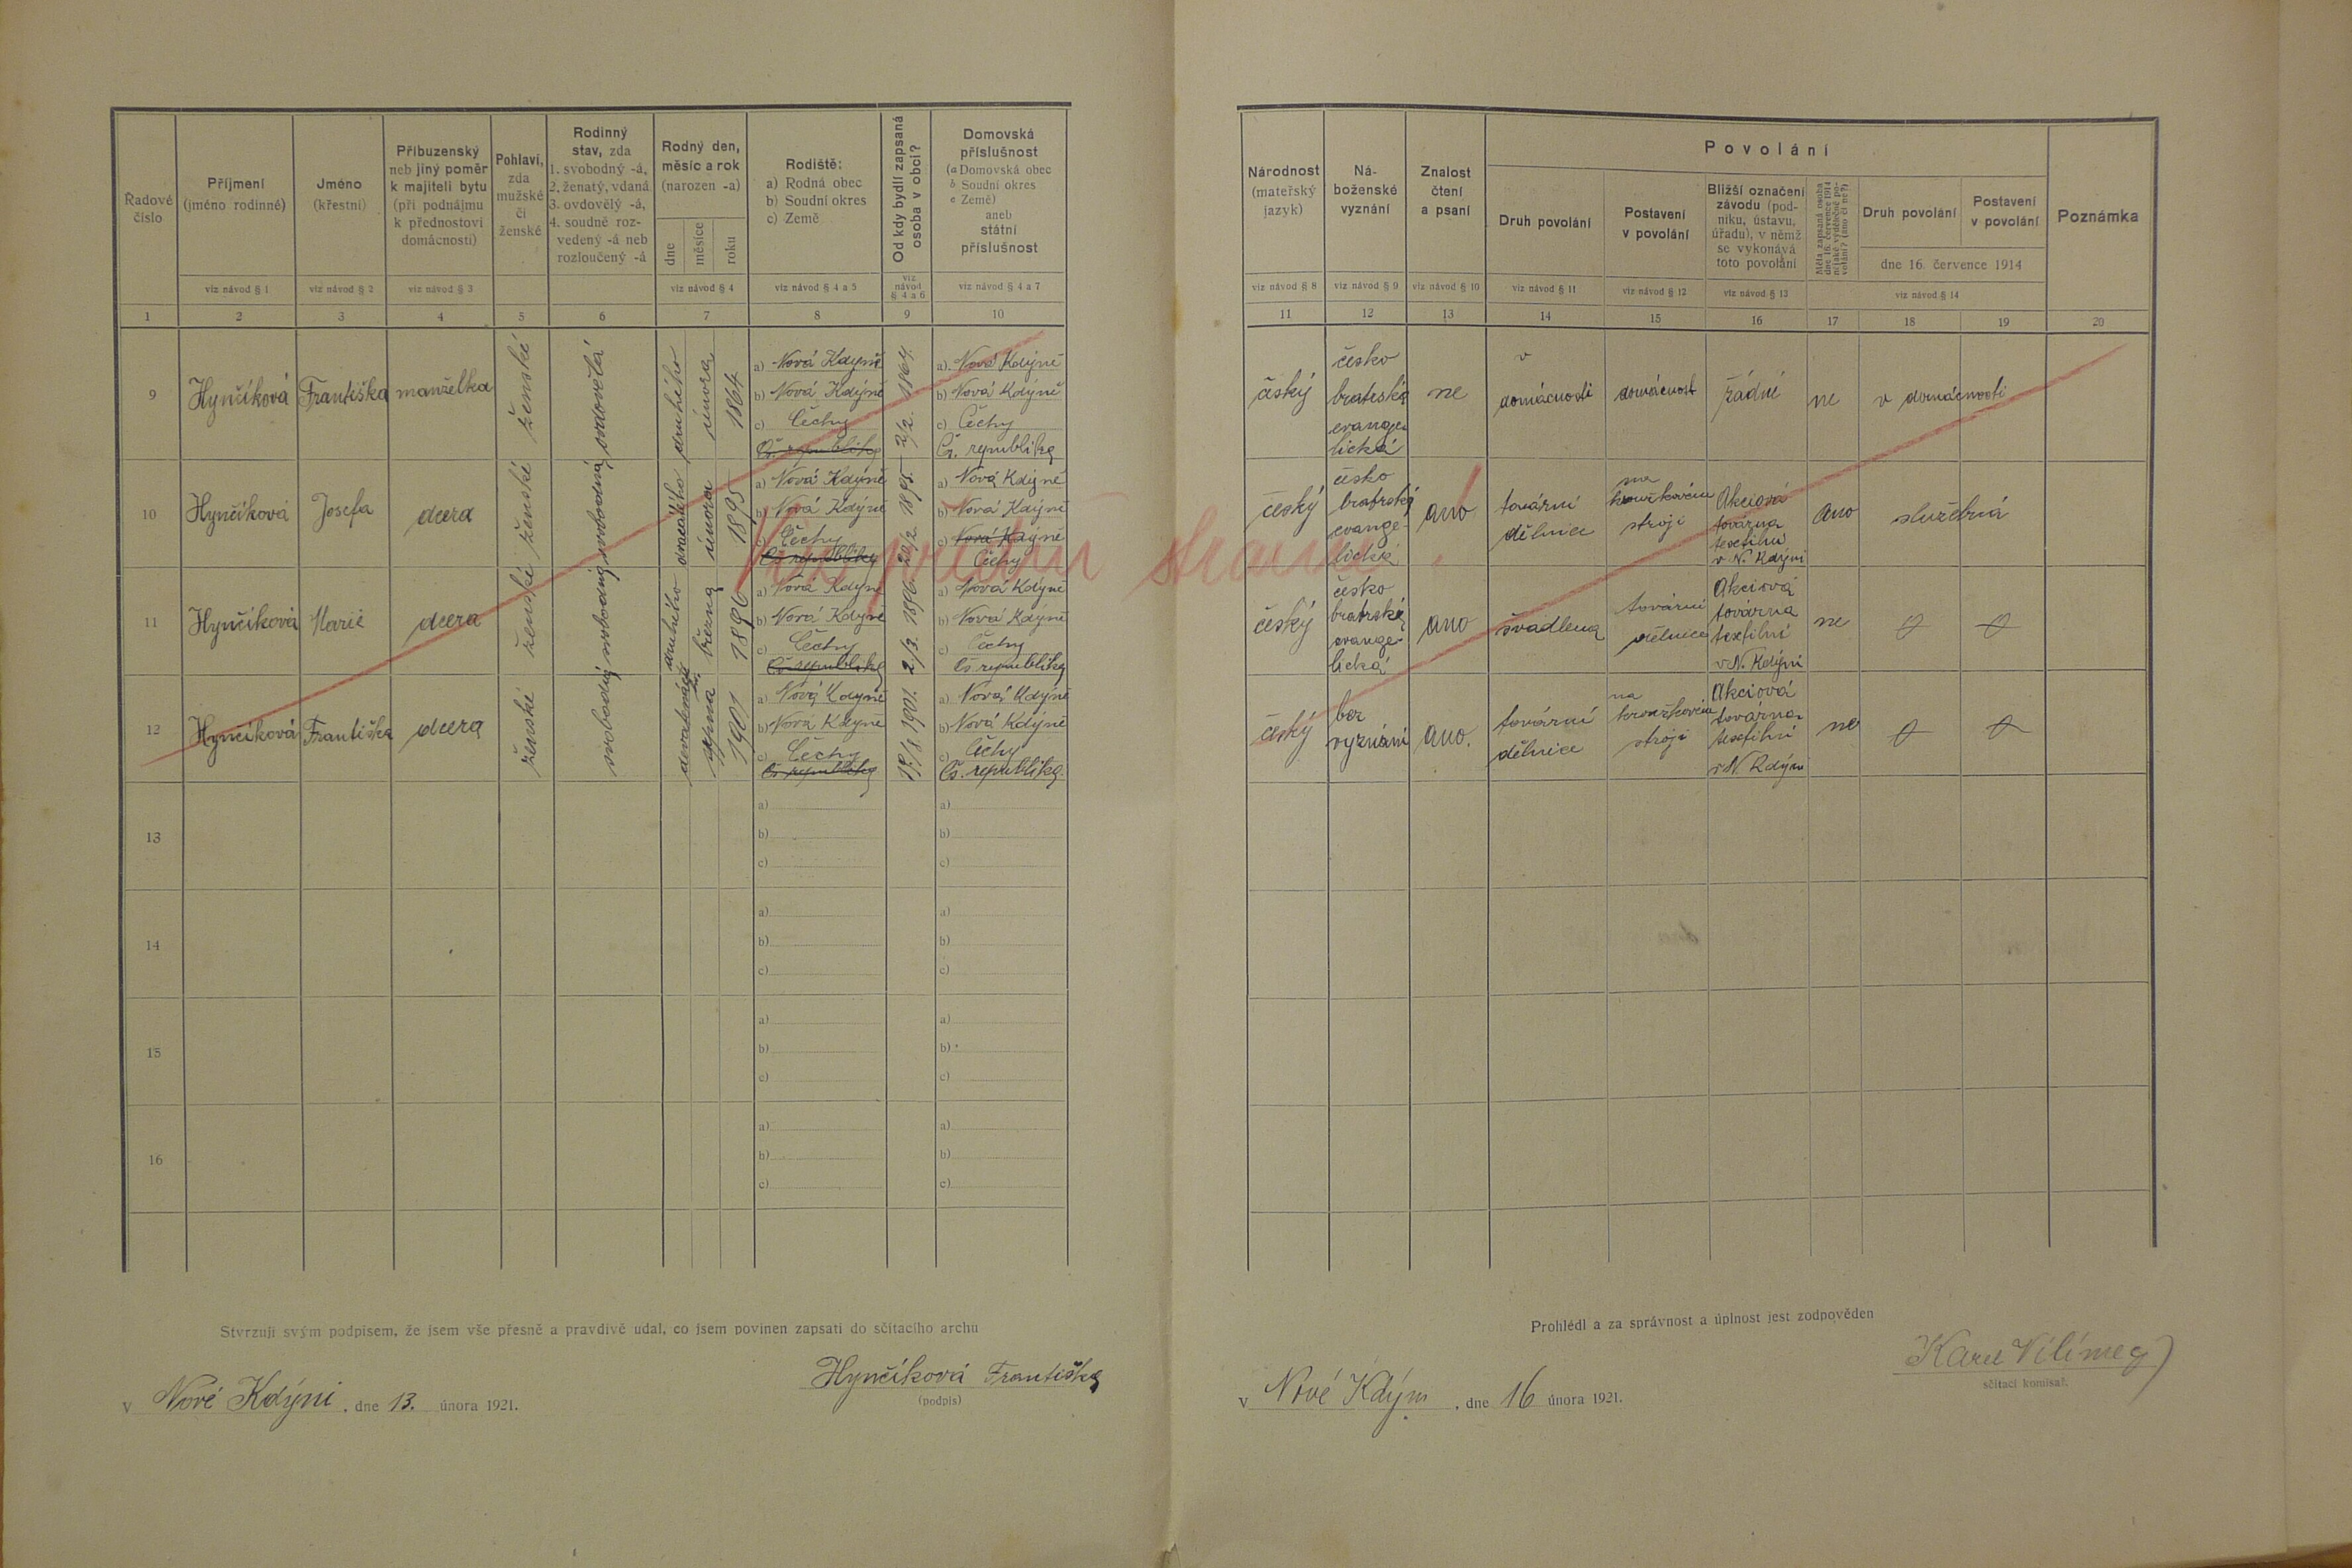 Řadové číslo
Příjmení (jméno rodinné)
Jméno (křestní)
Příbuzenský neb jiný poměr k majiteli bytu (při podnájmu k přednostovi domácnosti)
Pohlaví, zda mužské či ženské
Rodinný stav, zda 1. svobodný -á, 2. ženatý, vdaná 3. ovdovělý -á, 4. soudně rozvedený -á neb rozloučený -á
Rodný den, měsíc a rok (narozen -a)
dne
měsíce
roku
Rodiště:
a) Rodná obec
b) Soudní okres
c) Země
Od kdy bydlí zapsaná osoba v obci?
Domovská příslušnost
(a Domovská obec
b Soudní okres
c Země)
aneb státní příslušnost
viz návod § 1
viz návod § 2
viz návod § 3
viz návod § 4
viz návod § 4 a 5
viz návod § 4 a 6
viz návod § 4 a 7
1 2 3 4 5 6 7 8 9 10
9 Hynčíková Františka manželka ženské ovdovělá druhého února 1864
a) Nová Kdyně
b) Nová Kdýně
c) Čechy
Čs. republika
2/2. 1864.
a) Nová Kdýně
b) Nová Kdýně
c) Čechy
Čs. republika
10 Hynčíková Josefa dcera ženské svobodná dvacátého února 1895
a) Nová Kdýně
b) Nová Kdýně
c) Čechy
Čs republika
20/2. 1895.
a) Nová Kdýně
b) Nová Kdýně
c) Nová Kdýně
Čechy
11 Hynčíková Marie dcera ženské svobodná druhého března 1896
a) Nová Kdyně
b) Nová Kdýně
c) Čechy
Čs republika
2/3. 1896.
a) Nová Kdýně
b) Nová Kdýně
c) Čechy
Čs republika
12 Hynčíková Františka dcera ženské svobodná devatenáctého srpna 1901
a) Nová Kdyně
b) Nová Kdyně
c) Čechy
Čs republika
19./8. 1901.
a) Nová Kdýně
b) Nová Kdýně
c) Čechy
Čs. republika.
13
a)
b)
c)
a)
b)
c)
14
a)
b)
c)
a)
b)
c)
15
a)
b)
c)
a)
b)
c)
16
a)
b)
c)
a)
b)
c)
Stvrzuji svým podpisem, že jsem vše přesně a pravdivě udal, co jsem povinen zapsati do sčítacího archu
Hynčíková Františka
(podpis)
V Nové Kdýni, dne 13. února 1921.
Národnost (mateřský jazyk)
Náboženské vyznání
Znalost čtení a psaní
Povolání
Druh povolání
Postavení v povolání
Bližší označení závodu (podniku, ústavu, úřadu), v němž se vykonává toto povolání
Měla zapsaná osoba dne 16. července 1914 nějaké výdělečné povolání? (ano či ne?)
Druh povolání
Postavení v povolání
dne 16. července 1914
Poznámka
viz návod § 8
viz návod § 9
viz návod § 10
viz návod § 11
viz návod § 12
viz návod § 13
viz návod § 14
11 12 13 14 15 16 17 18 19 20
český
česko
bratrská
evange-
lická
ne
v
domácnosti
domácnost
žádné
ne
v domácnosti
český
česko
bratrská
evange-
lická
ano
tovární
dělnice
na
kroužkovém
stroji
Akciová
továrna
textilní
v N. Kdýni
ano
služebná
český
česko
bratrská
evange-
lická
ano
švadlena
tovární
dělnice
Akciová
továrna
textilní
v N. Kdýni
ne
český
bez
vyznání
ano.
tovární
dělnice
na
kroužkovém
stroji
Akciová
továrna
textilní
v N. Kdýni
ne
Viz přední strana!
Prohlédl a za správnost a úplnost jest zodpověden
Karel Vilímeg
sčítací komisař.
V Nové Kdýni, dne 16 února 1921.